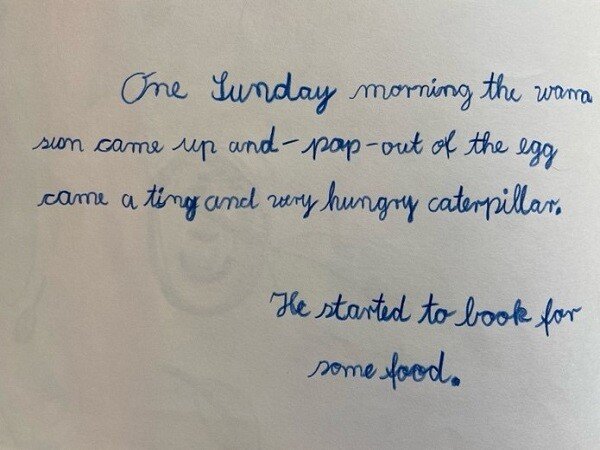 One Sunday morning the warm
sun came up and-pop-out of the egg
came a ting and very hungry caterpillar.
He started to book for
some food.